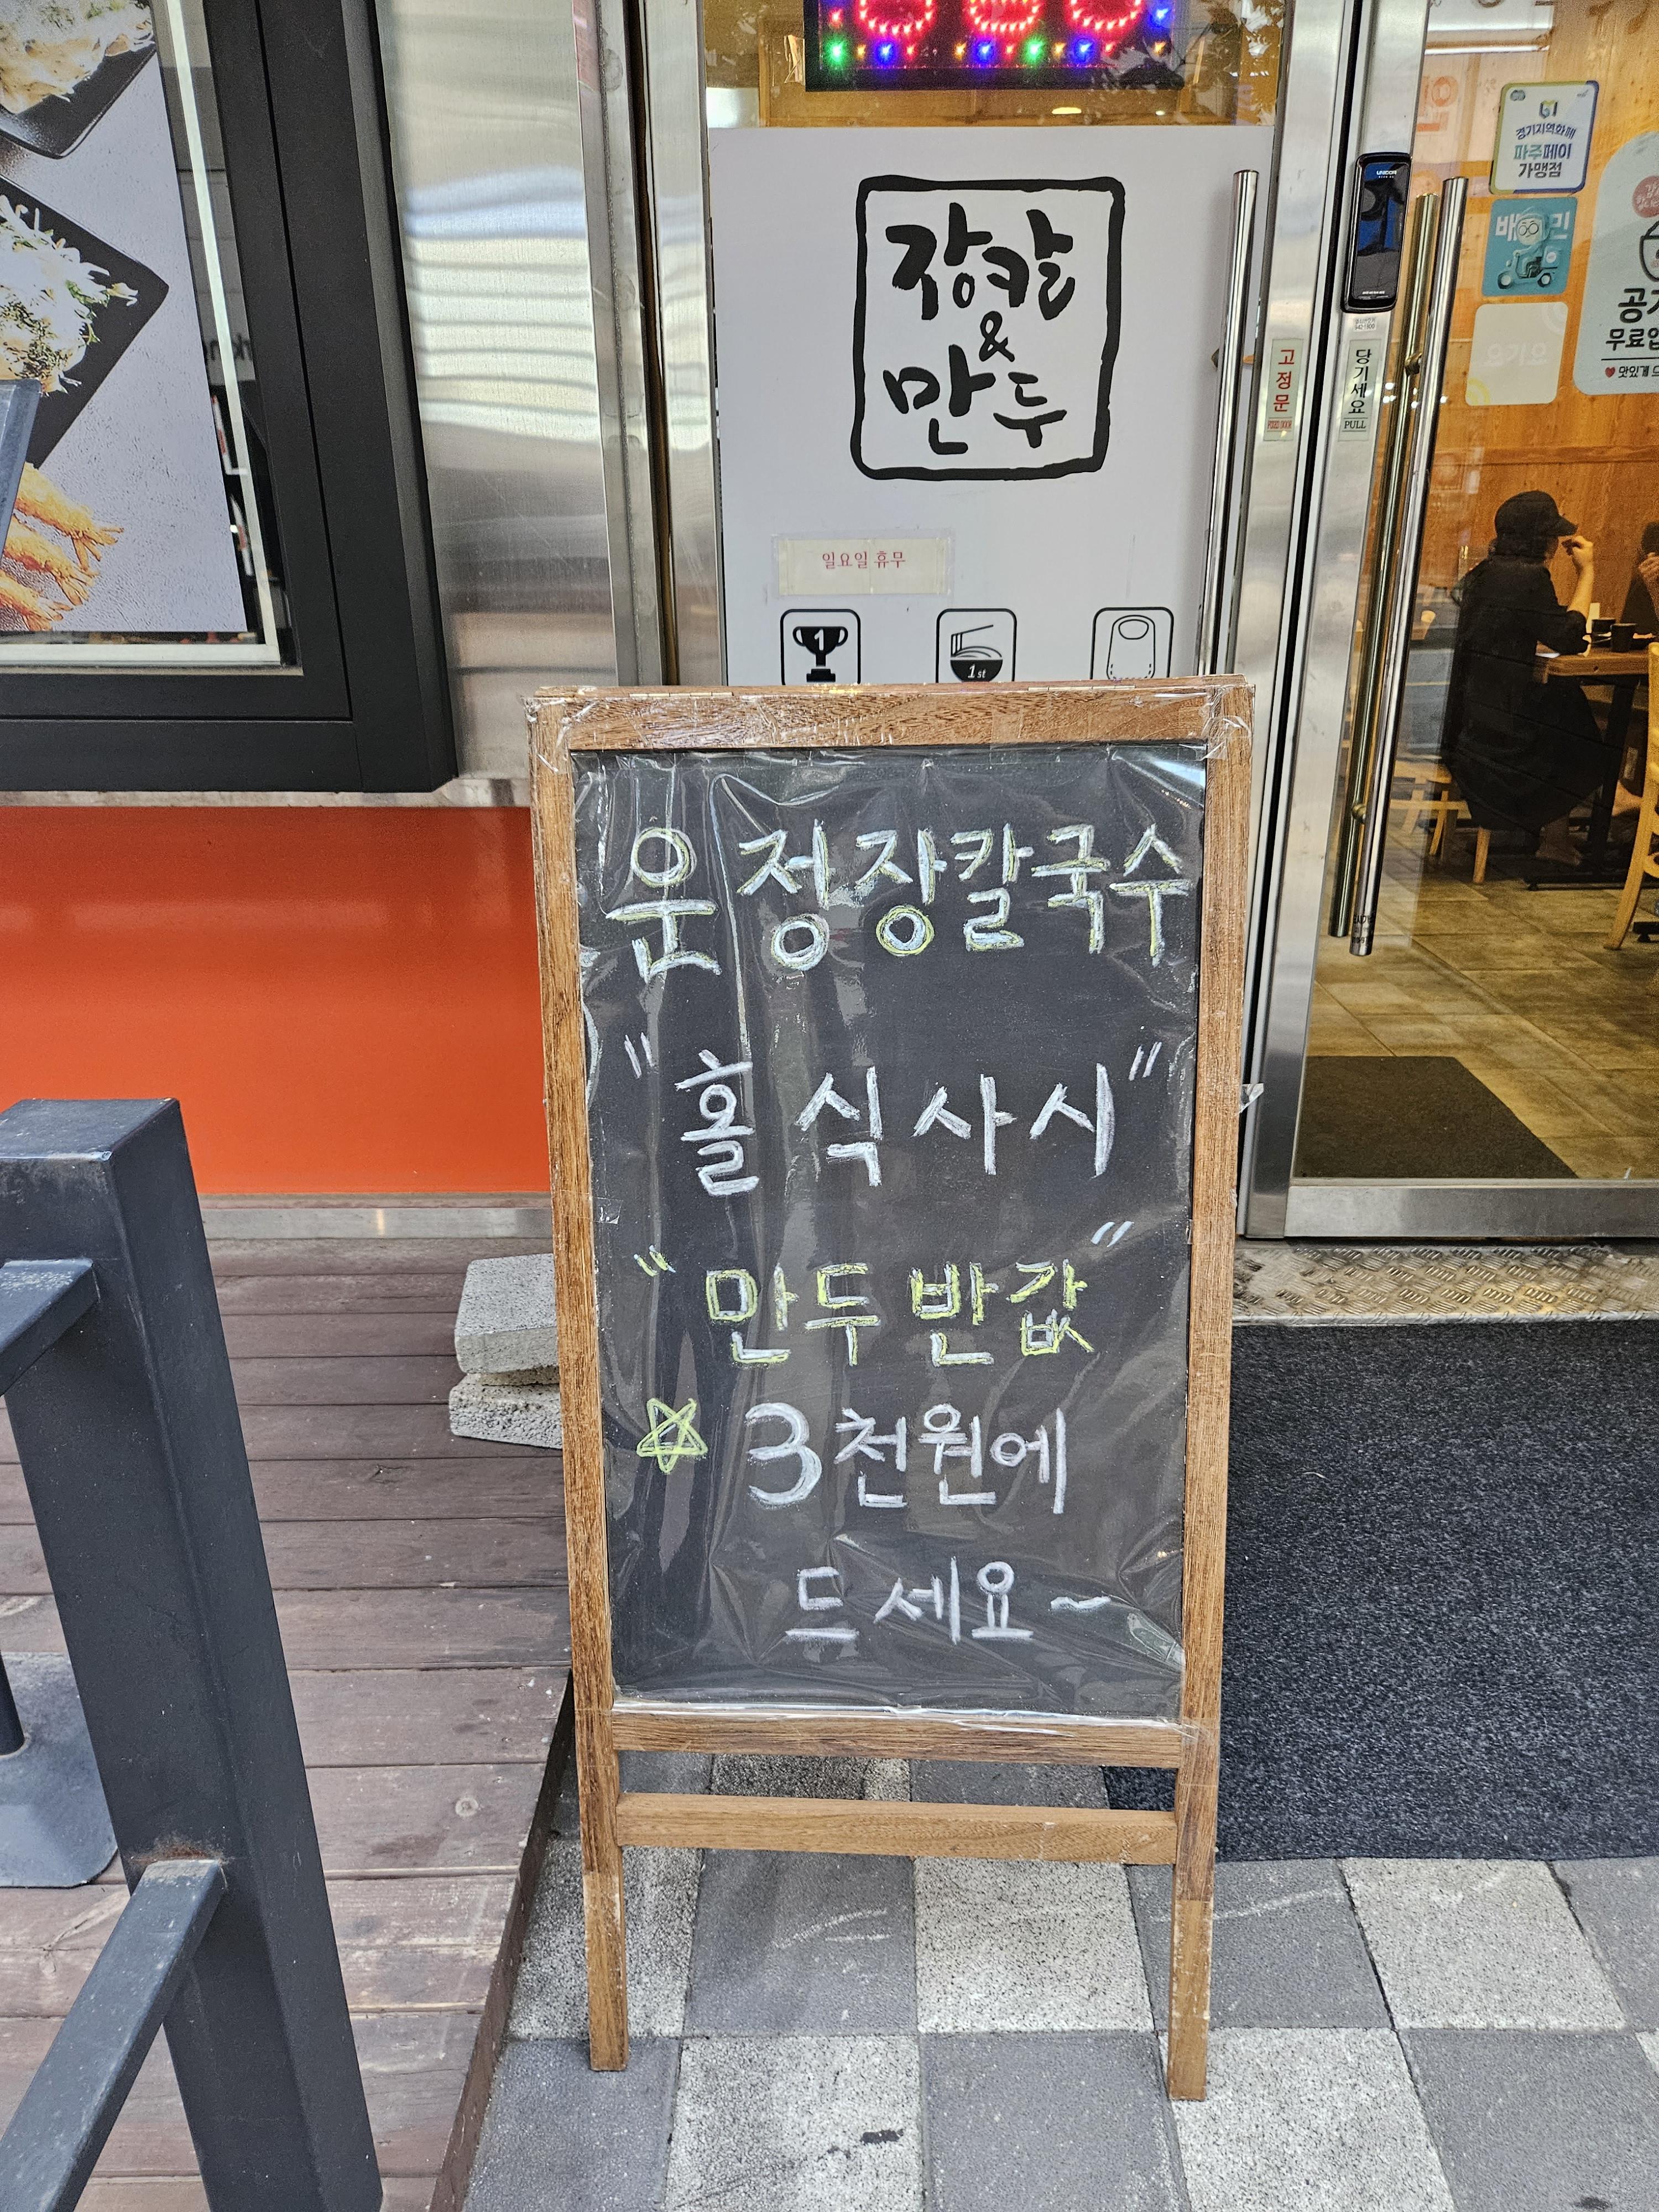 장칼
&
만두
일요일 휴무
1
1st
고정문
당기세요
PULL
경기지역화폐
파주페이
가맹점
배민
요기요
운정장칼국수
"홀 식사시"
"만두 반값"
3천원에
드세요~